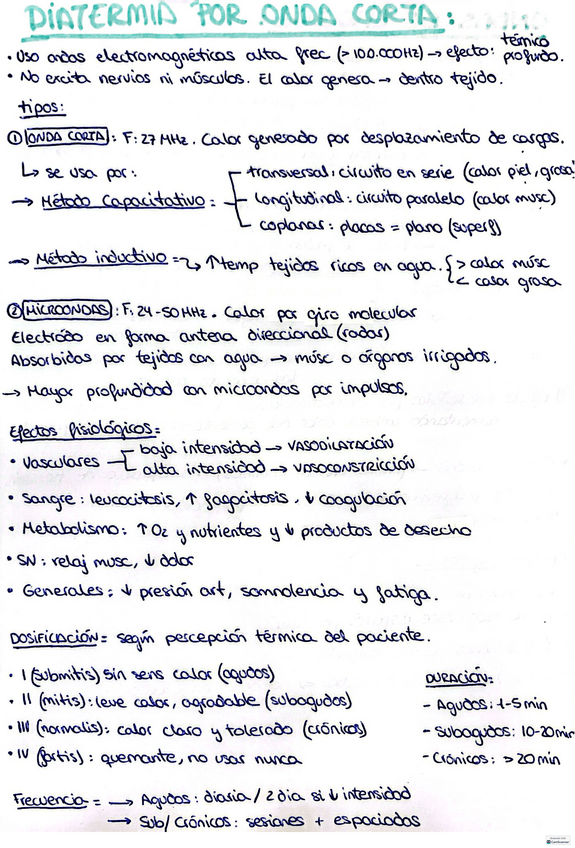 DIATERMIA POR ONDA CORTA:
• Uso ondas electromagnéticas alta frec (>100.000Hz) → efecto: térmico profundo.
• No excita nervios ni músculos. El calor genera → dentro tejido.
tipos:
① ONDA CORTA: F: 27 MHz. Calor generado por desplazamiento de cargas.
↳ se usa por:
→ Método Capacitativo:
transversal: circuito en serie (calor piel, grasa)
longitudinal: circuito paralelo (calor musc)
coplanar: placas = plano (superf)
→ Método inductivo = ↑temp tejidos ricos en agua. { > calor músc
< calor grasa
② MICROONDAS: F: 24-50MHz. Calor por giro molecular
Electródo en forma antena direccional (radar)
Absorbidas por tejidos con agua → músc o órganos irrigados.
→ Mayor profundidad con microondas por impulsos.
Efectos fisiológicos:
• Vasculares
baja intensidad → VASODILATACIÓN
alta intensidad → VASOCONSTRICCIÓN
• Sangre: leucocitosis, ↑ fagocitosis, ↓ coagulación
• Metabolismo: ↑ O2 y nutrientes y ↓ productos de desecho
• SN: relaj musc, ↓ dolor
• Generales: ↓ presión art, somnolencia y fatiga.
DOSIFICACIÓN = según percepción térmica del paciente.
• I (submitis) sin sens calor (agudos)
• II (mitis): leve calor, agradable (subagudos)
• III (normalis): calor claro y tolerado (crónicos)
• IV (fortis): quemante, no usar nunca
DURACIÓN:
- Agudos: 1-5 min
- Subagudos: 10-20min
- Crónicos: > 20 min
Frecuencia = → Agudos: diaria / 2 dia si ↓ intensidad
→ Sub/Crónicos: sesiones + espaciadas
CamScanner